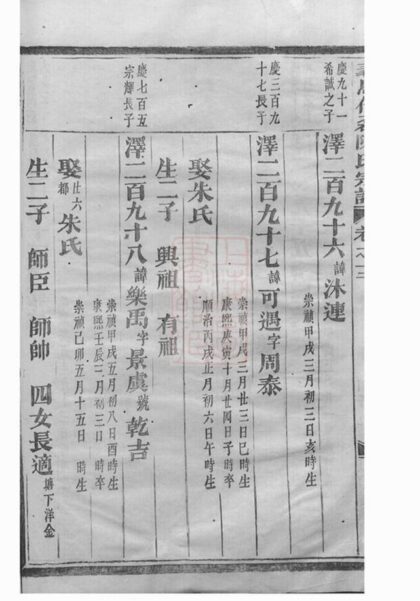 慶九十一
希誠之子
澤二百九十六諱沐連
崇禎甲戌三月初三日亥時生
慶三百九
十七長子
澤二百九十七諱可遇字周泰
崇禎甲戌三月廿三日巳時生
康熙庚寅十月廿四日子時卒
娶朱氏
順治丙戌正月初六日午時生
生二子 興祖 有祖
慶七百五
宗輝長子
澤二百九十八諱樂禹字景虞號乾吉
崇禎甲戌五月初八日酉時生
康熙壬辰三月初三日 時卒
娶廿六都朱氏
崇禎己卯五月十五日 時生
生二子 師臣 師帥 四女長適塘下洋金